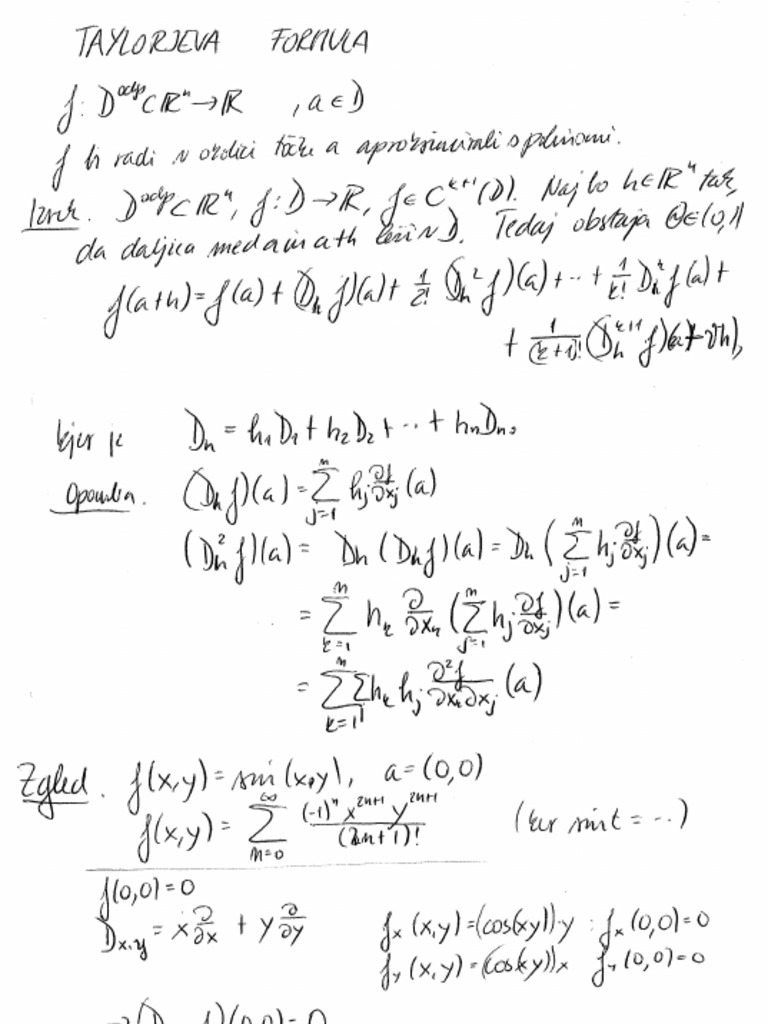 TAYLORJEVA FORMULA
f: D^odp ⊂ ℝ^n → ℝ , a ∈ D
f bi radi v okolici točke a aproksimirali s polinomi.
Izrek. D^odp ⊂ ℝ^n, f: D → ℝ, f ∈ C^{k+1}(D). Naj bo h ∈ ℝ^n tak,
da daljica med a in a+h leži v D. Tedaj obstaja θ ∈ (0,1)
f(a+h) = f(a) + (D_h f)(a) + 1/2! (D_h^2 f)(a) + ... + 1/k! D_h^k f(a) +
+ 1/(k+1)! (D_h^{k+1} f)(a+ϑh),
kjer je D_h = h_1 D_1 + h_2 D_2 + ... + h_n D_n.
Opomba. (D_h f)(a) = ∑_{j=1}^n h_j ∂f/∂x_j (a)
(D_h^2 f)(a) = D_h (D_h f)(a) = D_h (∑_{j=1}^n h_j ∂f/∂x_j)(a) =
= ∑_{k=1}^n h_k ∂/∂x_k (∑_{j=1}^n h_j ∂f/∂x_j)(a) =
= ∑_{k=1}^n ∑ h_k h_j ∂²f/∂x_k∂x_j (a)
Zgled. f(x,y) = sin(x·y), a = (0,0)
f(x,y) = ∑_{n=0}^∞ (-1)^n x^{2n+1} y^{2n+1}/(2n+1)! (ker sin t = ...)
f(0,0) = 0
D_{x,y} = x ∂/∂x + y ∂/∂y f_x (x,y) = (cos(xy))·y : f_x (0,0) = 0
f_y (x,y) = (cos(xy))x f_y (0,0) = 0